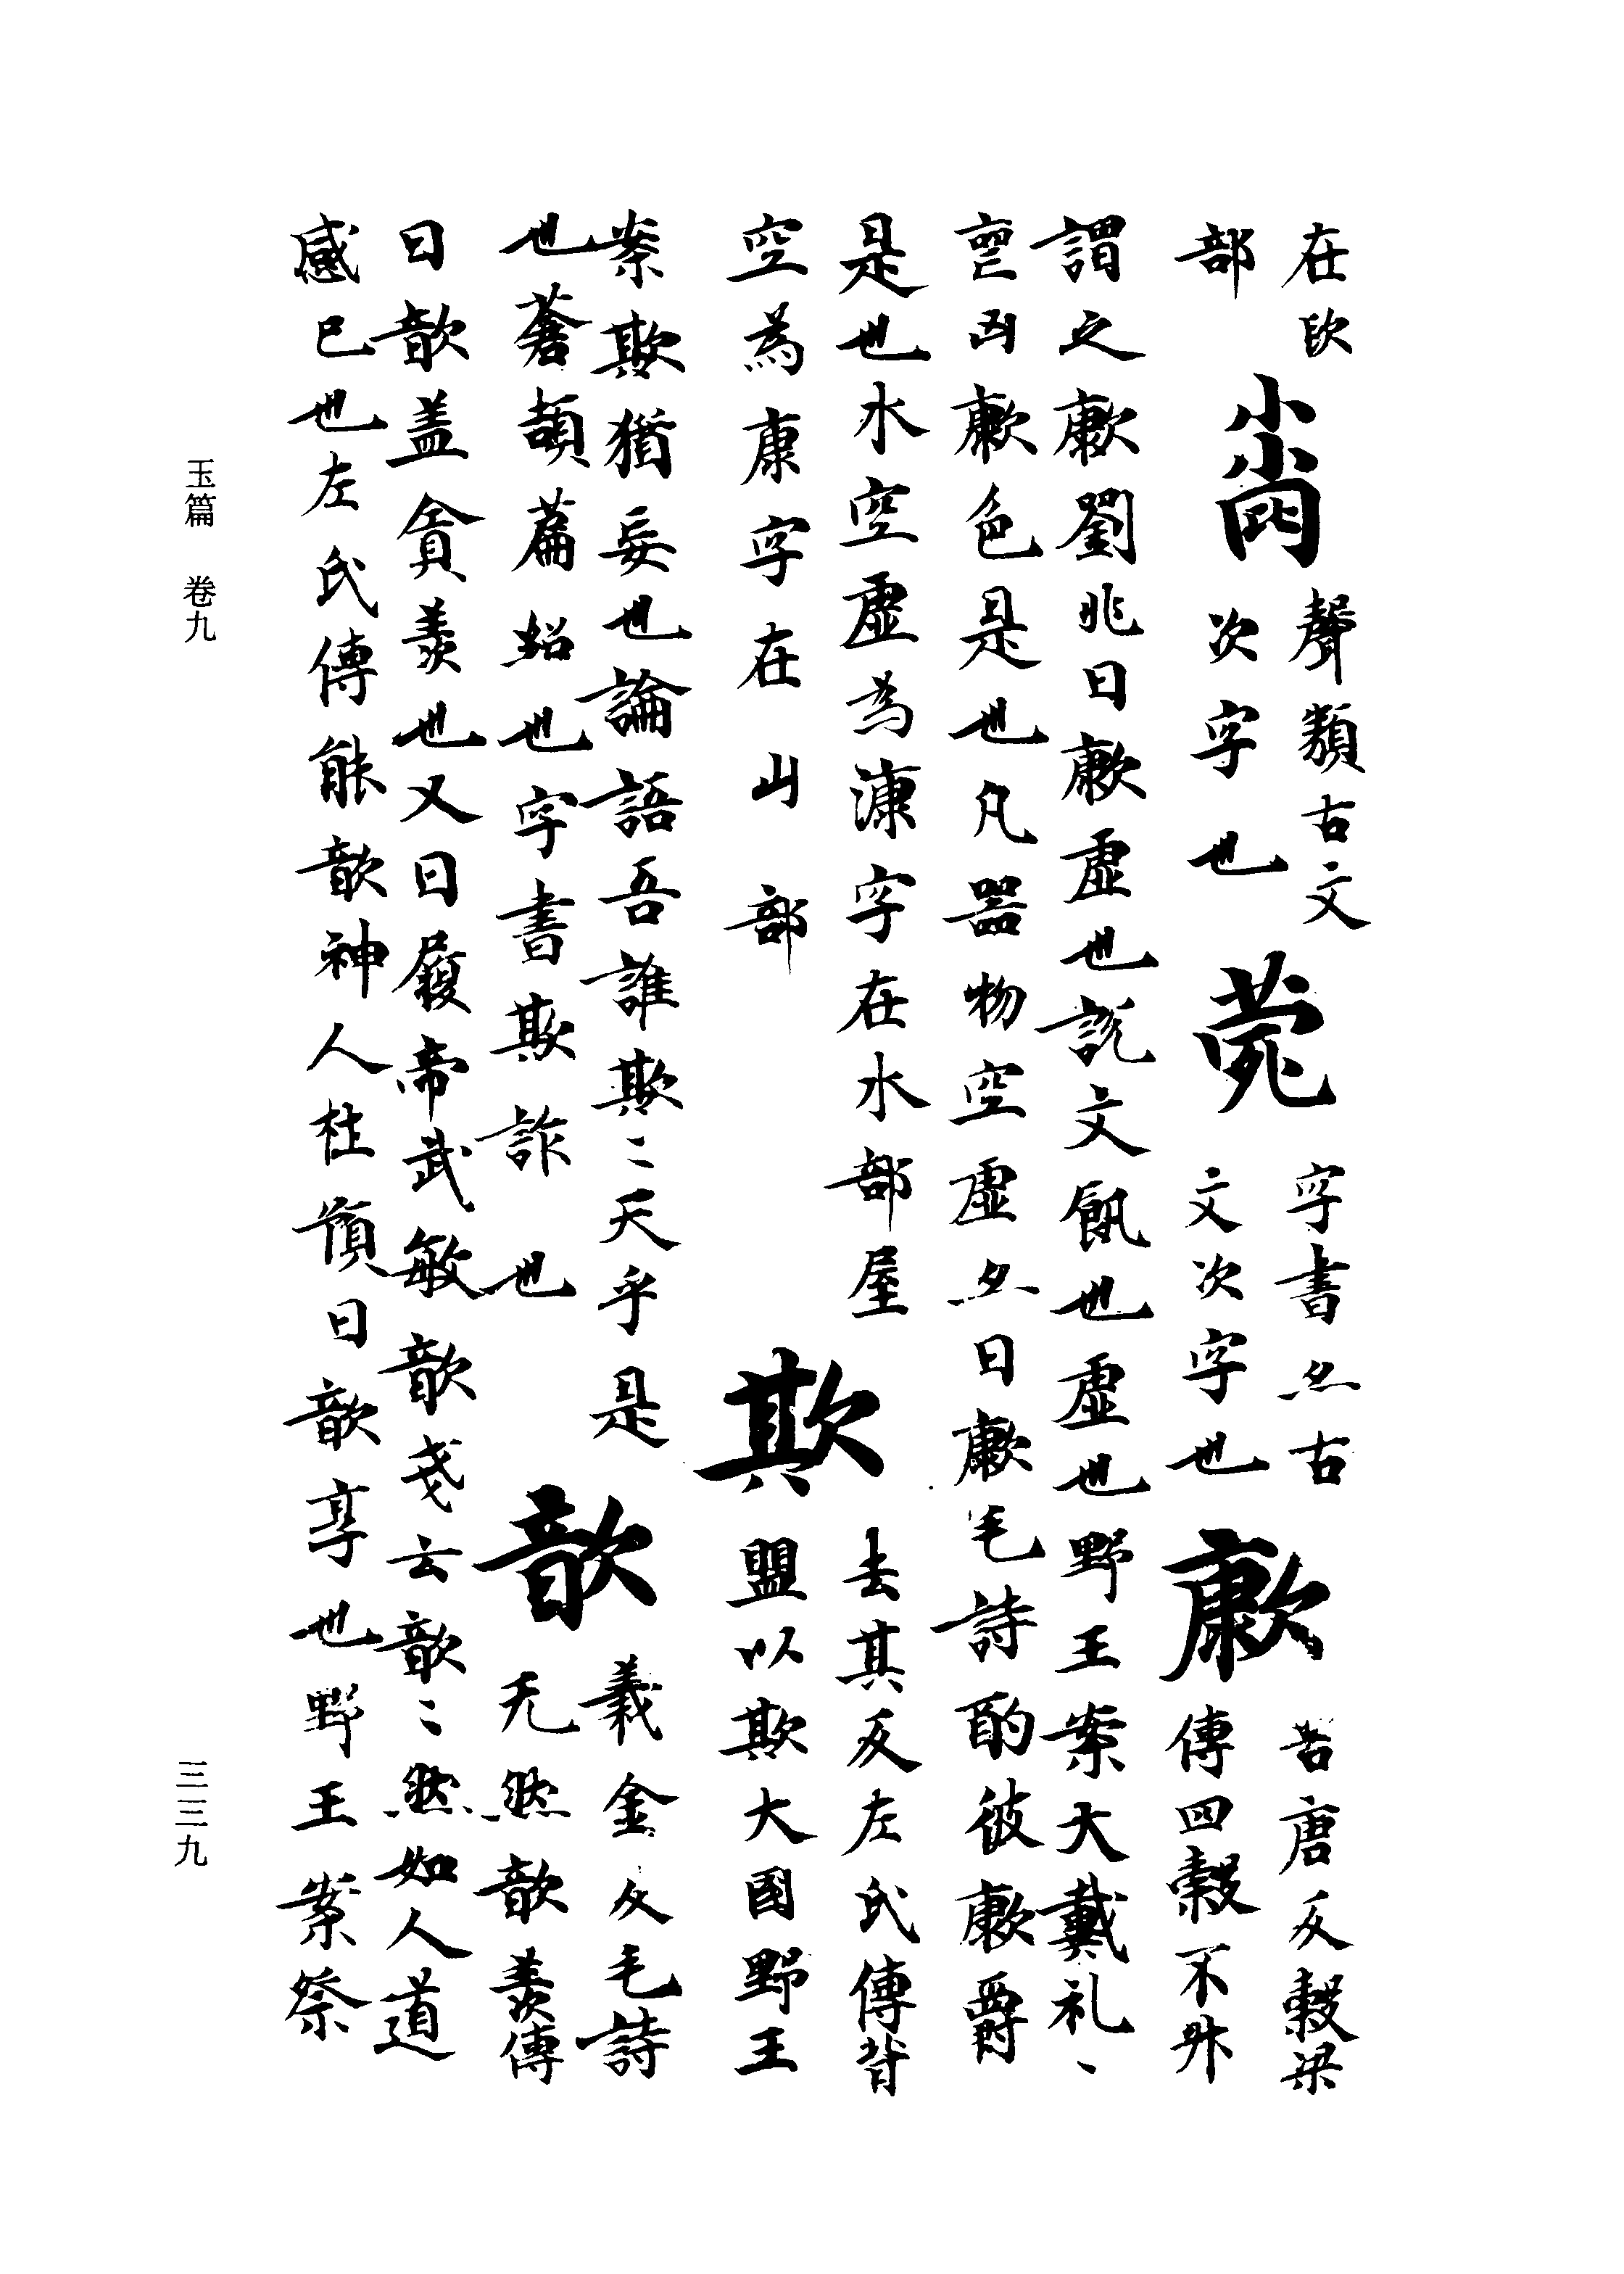 在欪
部
聲類古文
次字也
字書亦古
文次字也
㱂
苦唐反穀梁
傳四穀不升
謂之㱂劉兆曰㱂虛也說文飢也虛也野王案大戴礼〻
凶㱂色是也凡器物空虛亦曰㱂毛詩酌彼㱂爵
是也水空虛為漮字在水部屋
空為康字在山部
欺
去其反左氏傳背
盟以欺大國野王
案欺猶妄也論語吾誰欺〻天乎是
也蒼頡篇紿也字書欺詐也
歆
羲金反毛詩
无然歆羡傳
曰歆盖貪羡也又曰履帝武敏歆戔云歆〻然如人道
感已也左氏傳能歆神人杜預曰歆享也野王案祭
玉篇 卷九
三三九